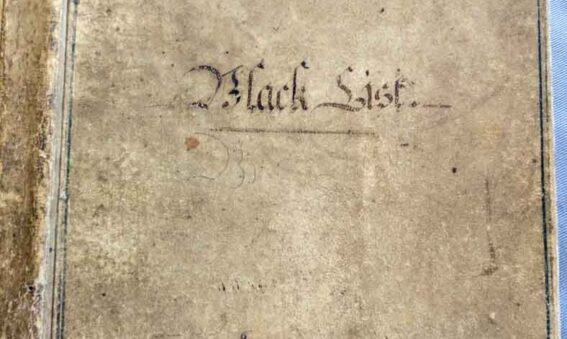 Black List.